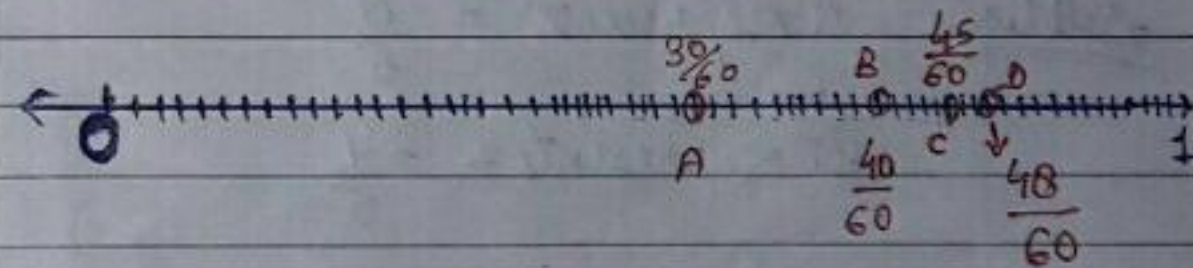 30/60 B 45/60 D
0 A C 1
40/60 48/60